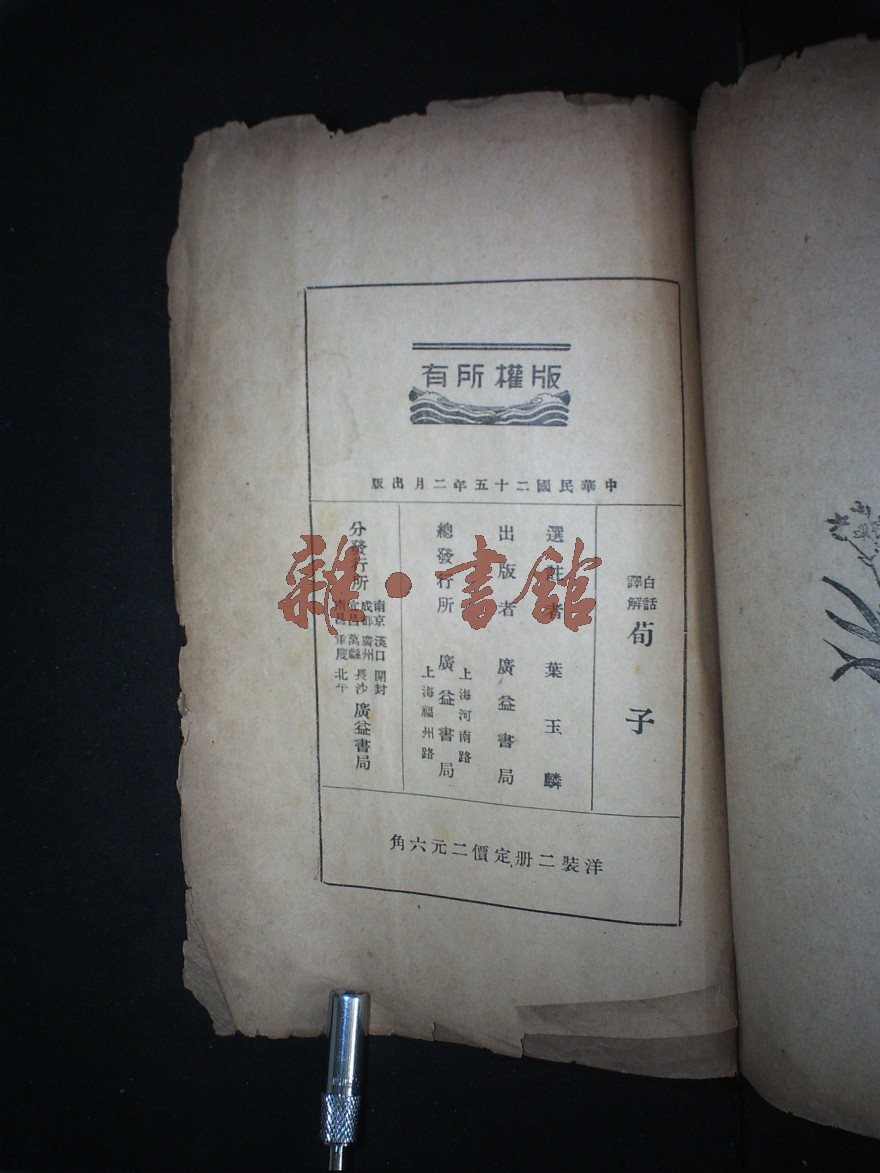 版權所有
中華民國二十五年二月出版
白話譯解 荀子
選註者 葉玉麟
出版者 廣益書局
總發行所 上海河南路 上海福州路 廣益書局
分發行所 南京 漢口 開封 成都 廣州 長沙 宜昌 萬縣 北平 南昌 重慶 廣益書局
洋裝二册定價二元六角
雜·書館